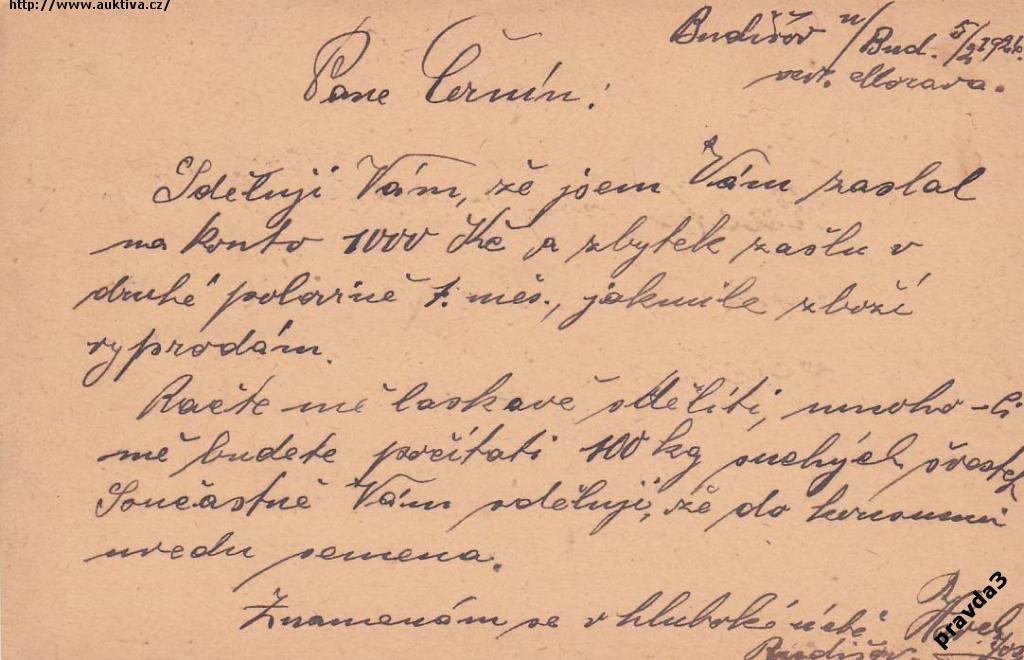 http://www.auktiva.cz/
Budišov n/Bud. 5/2 1926.
sev. Morava.
Pane Černín!
Sděluji Vám, že jsem Vám zaslal
na konto 1000 Kč a zbytek zašlu v
druhé polovině t. měs., jakmile zboží
vyprodám.
Račte mě laskavě sděliti, mnoho-li
mě budete počítati 100 kg suchých švestek
Součastně Vám sděluji, že do konsumu
uvedu semena.
Znamenám se v hluboké úctě
Budišov
pravda3